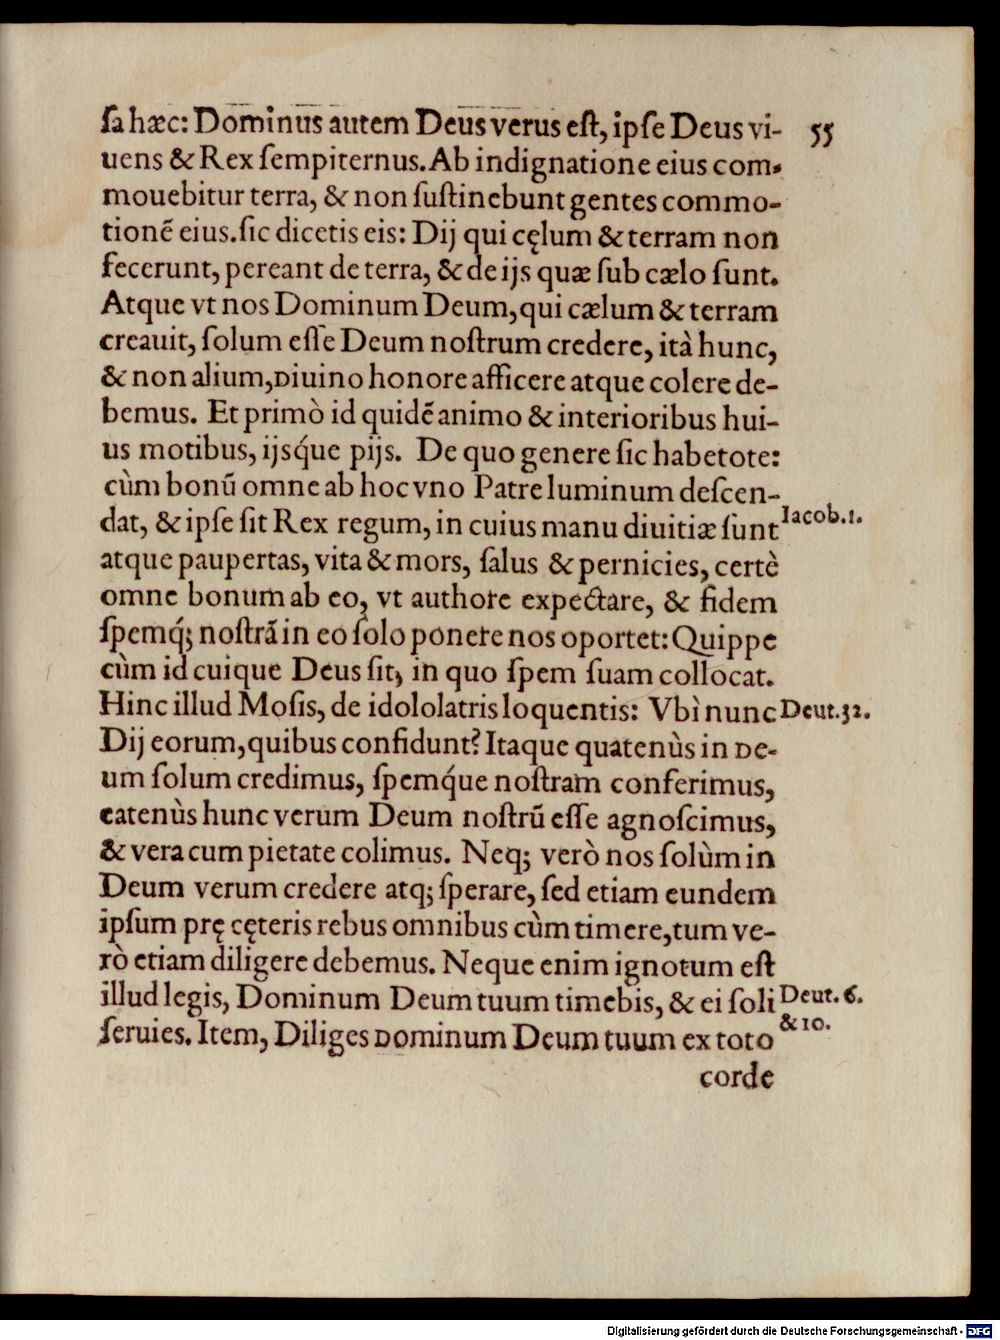 sa hæc: Dominus autem Deus verus est, ipse Deus vi- 55
uens & Rex sempiternus. Ab indignatione eius com-
mouebitur terra, & non sustinebunt gentes commo-
tionẽ eius. sic dicetis eis: Dij qui cęlum & terram non
fecerunt, pereant de terra, & de ijs quæ sub cælo sunt.
Atque vt nos Dominum Deum, qui cælum & terram
creauit, solum esse Deum nostrum credere, ità hunc,
& non alium, Diuino honore afficere atque colere de-
bemus. Et primò id quidẽ animo & interioribus hui-
us motibus, ijsq́ue pijs. De quo genere sic habetote:
cùm bonũ omne ab hoc vno Patre luminum descen-
dat, & ipse sit Rex regum, in cuius manu diuitiæ sunt Iacob. 1.
atque paupertas, vita & mors, salus & pernicies, certè
omne bonum ab eo, vt authore expectare, & fidem
spemq́; nostrã in eo solo ponere nos oportet: Quippe
cùm id cuique Deus sit, in quo spem suam collocat.
Hinc illud Mosis, de idololatris loquentis: Vbì nunc Deut. 32.
Dij eorum, quibus confidunt? Itaque quatenùs in De-
um solum credimus, spemq́ue nostram conferimus,
eatenùs hunc verum Deum nostrũ esse agnoscimus,
& vera cum pietate colimus. Neq; verò nos solùm in
Deum verum credere atq; sperare, sed etiam eundem
ipsum prę cęteris rebus omnibus cùm timere, tum ve-
rò etiam diligere debemus. Neque enim ignotum est
illud legis, Dominum Deum tuum timebis, & ei soli Deut. 6.
& 10.
seruies. Item, Diliges Dominum Deum tuum ex toto
corde
Digitalisierung gefördert durch die Deutsche Forschungsgemeinschaft - DFG